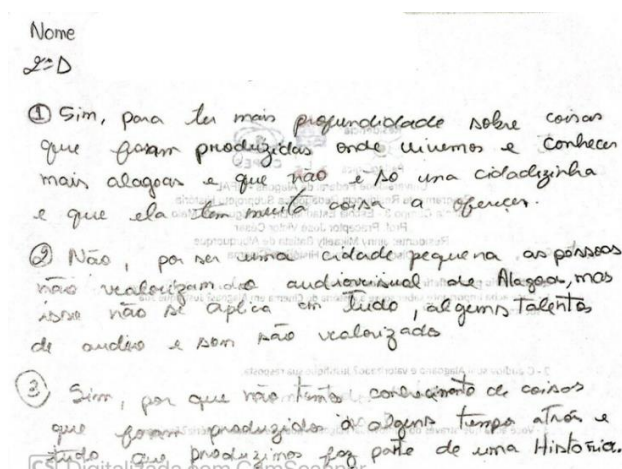 Nome
2º D
① Sim, para ter mais profundidade sobre coisas
que foram produzidas onde vivemos e conhecer
mais alagoas e que não é só uma cidadizinha
e que ela tem muita coisa a oferecer.
② Não, por ser uma cidade pequena as pessoas
não valorizam do audiovisual de Alagoas, mas
isso não se aplica em tudo, alguns talentos
de audio e som são valorizados
③ Sim, por que não temos conhecimento de coisas
que foram produzidos às alguns tempo atrás e
tudo que produzimos faz parte de uma História.
CS Digitalizada com CamScanner